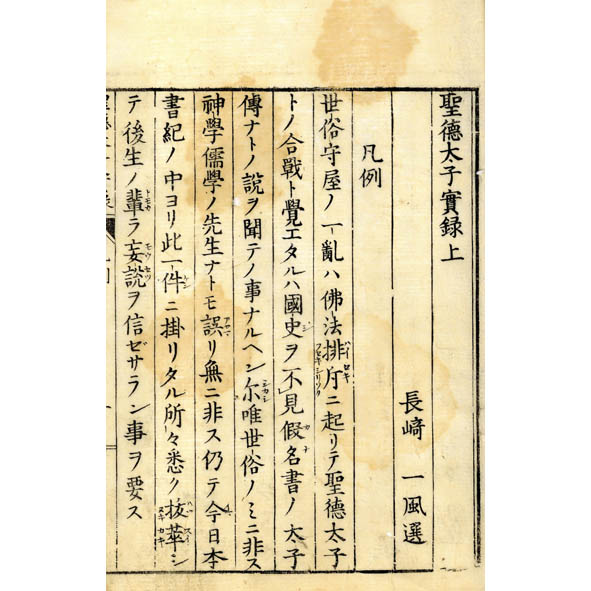 聖德太子實録上
長﨑 一風選
凡例
世俗守屋ノ一亂ハ佛法排斥ニ起リテ聖德太子
トノ合戰ト覺エタルハ國史ヲ不見假名書ノ太子
傳ナトノ說ヲ聞テノ事ナルヘシ尓唯世俗ノミニ非ス
神學儒學ノ先生ナトモ誤リ無ニ非ス仍テ今日本
書紀ノ中ヨリ此一件ニ掛リタル所々悉ク抜萃シ
テ後生ノ輩ラ妄說ヲ信ゼサラン事ヲ要ス